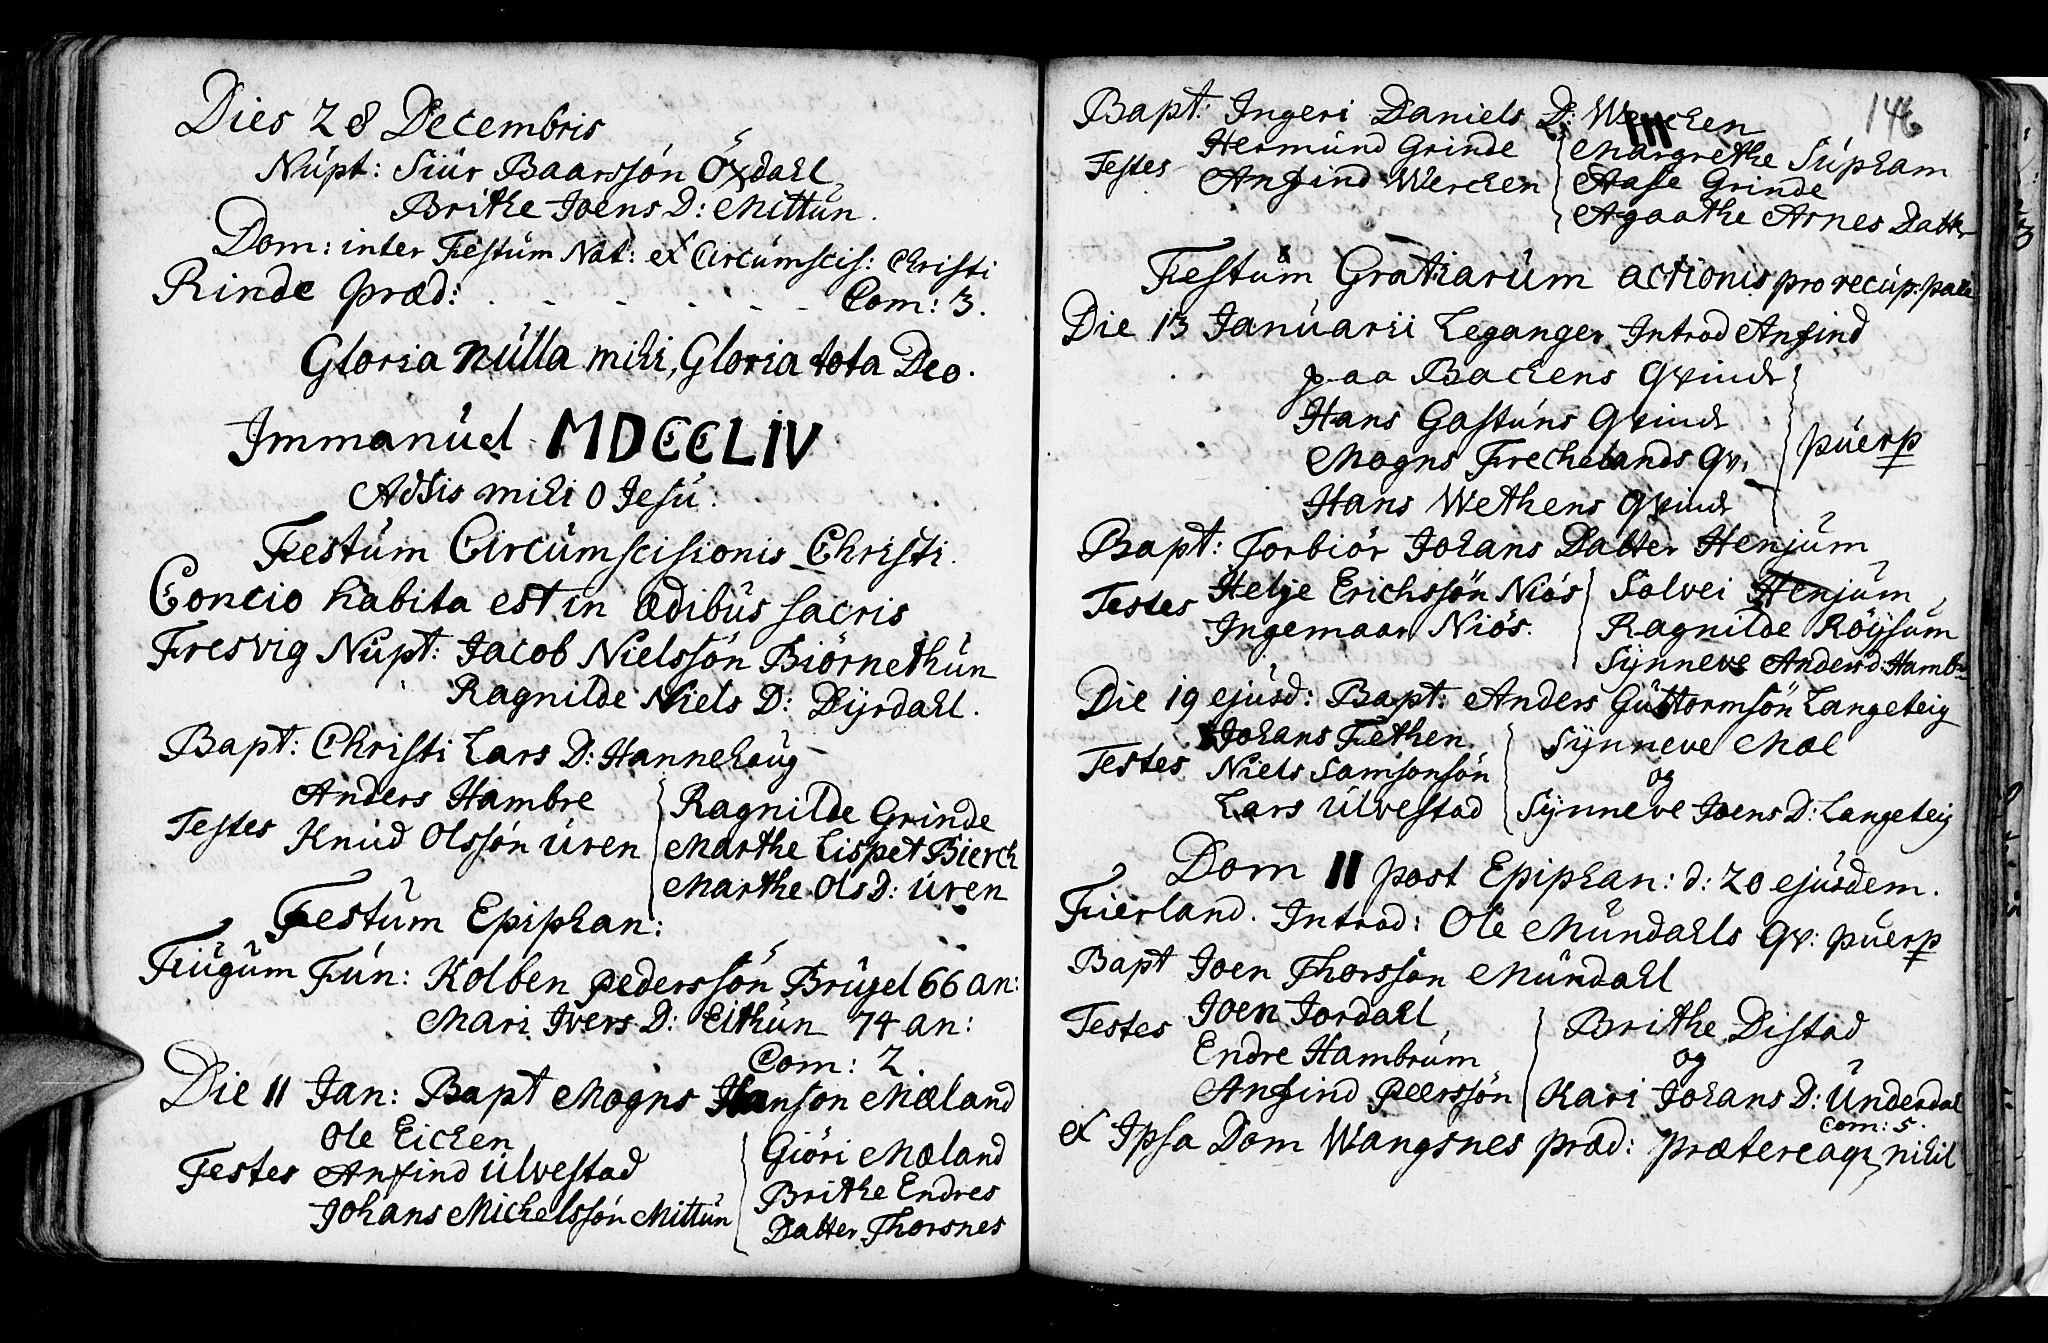 Dies 28 Decembris
Núpt: Siúr Baarssón Öxdahl
Brithe Joens D: Mittún.
Dom: inter Festúm Nat: et Circúmscis: Christi
Rinde præd: . - - - - - Com: 3.
Gloria núlla mihi, Gloria tota Deo.
Immanúel MDCCLIV
Adsis mihi O Jesú.
Festúm Circúmscisionis Christi.
Concio habita est in ædibús sacris
Fresvig Núpt: Jacob Nielssón Biörnethún
Ragnilde Niels D: Dÿrdahl.
Bapt: Christi Lars D: Hannehoúg
Anders Hambre
Testes Knúd Olssón úren
Ragnilde Grinde
Marthe Lispet Bierch
Marthe Ols D: úren
Festúm Epiphan:
Fiúgúm Fún: Kolben pederssön Brúgel 66 an:
Mari Ivers D: Eithún 74 an:
Com: 2.
Die 11 Jan: Bapt Mogns Hanson Mæland
Ole Eichen
Testes Anfind úlvestad
Johans Michelssón Mittún
Giöri Mæland
Brithe Endres
Datter Thorsnes
146
Bapt: Ingeri Daniels D: Werchen
Testes Hermúnd Grinde
Anfind Werchen
Margrethe Súpham
Aase Grinde
Agaathe Arnes Datter
Festúm Gratiarúm actionis pro recúp:
Die 13 Janúarii Leganger Introd Anfind
paa Bachens Qvinde
Hans Gastúns Qvinde
Mogns Frechelands Qv.
Hans Wethens Qvinde
púerp
Bapt: Torbiör Johans Datter Henjúm
Testes Helje Erichssön Niös
Ingemaar Niös.
Solvei Henjúm
Ragnilde Röÿsúm
Sÿnneve Anders d: Hambre
Die 19 ejúsd: Bapt: Anders Gúttormsön Langeteig
Johans Fethen
Testes Niels Samsonsön
Lars úlvestad
Sÿnneve Mæl
og
Sÿnneve Joens D: Langeteig
Dom II post Epiphan: d: 20 ejúsdem.
Fierland. Introd: Ole Múndahls Qv: púerp
Bapt Joen Thorsson Múndahl
Testes Joen Jordahl
Endre Hambrúm
Anfind Peerssön
Brithe Distad
og
Kari Johans D: Únderdal
Com: 5.
et Ipsa Dom Wangsnes præd: prætereaqz nihil